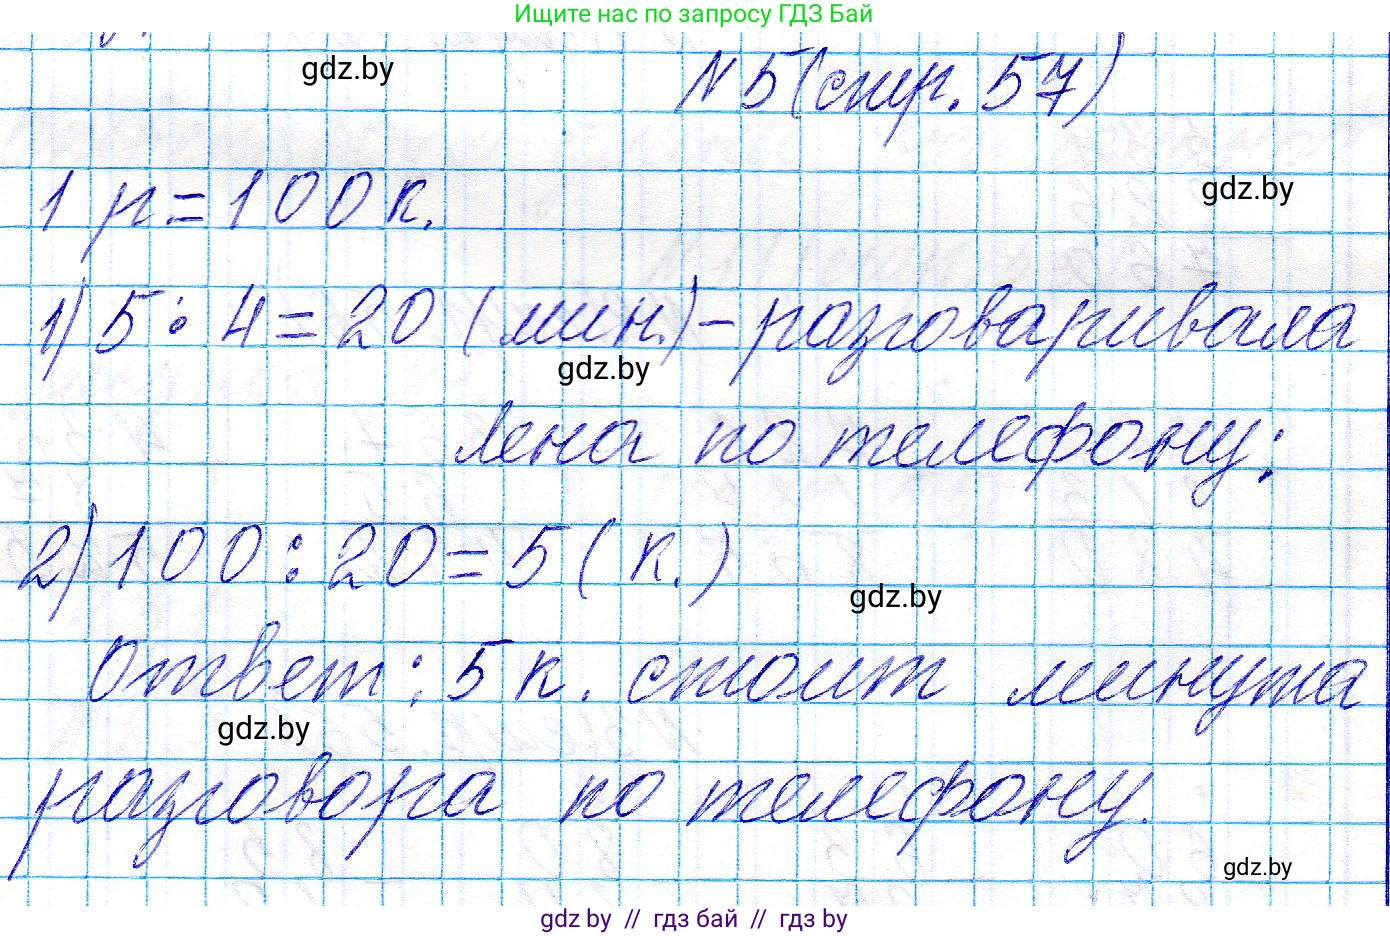 Ищите нас по запросу ГДЗ Бай
gdz.by
N 5 (стр. 57)
1 р = 100 к.
gdz.by
1) 5 : 4 = 20 (мин.) - разговаривала
gdz.by
Лена по телефону;
2) 100 : 20 = 5 (к.)
gdz.by
Ответ: 5 к. стоит минута
gdz.by
разговора по телефону.
gdz.by
gdz by // гдз бай // гдз by